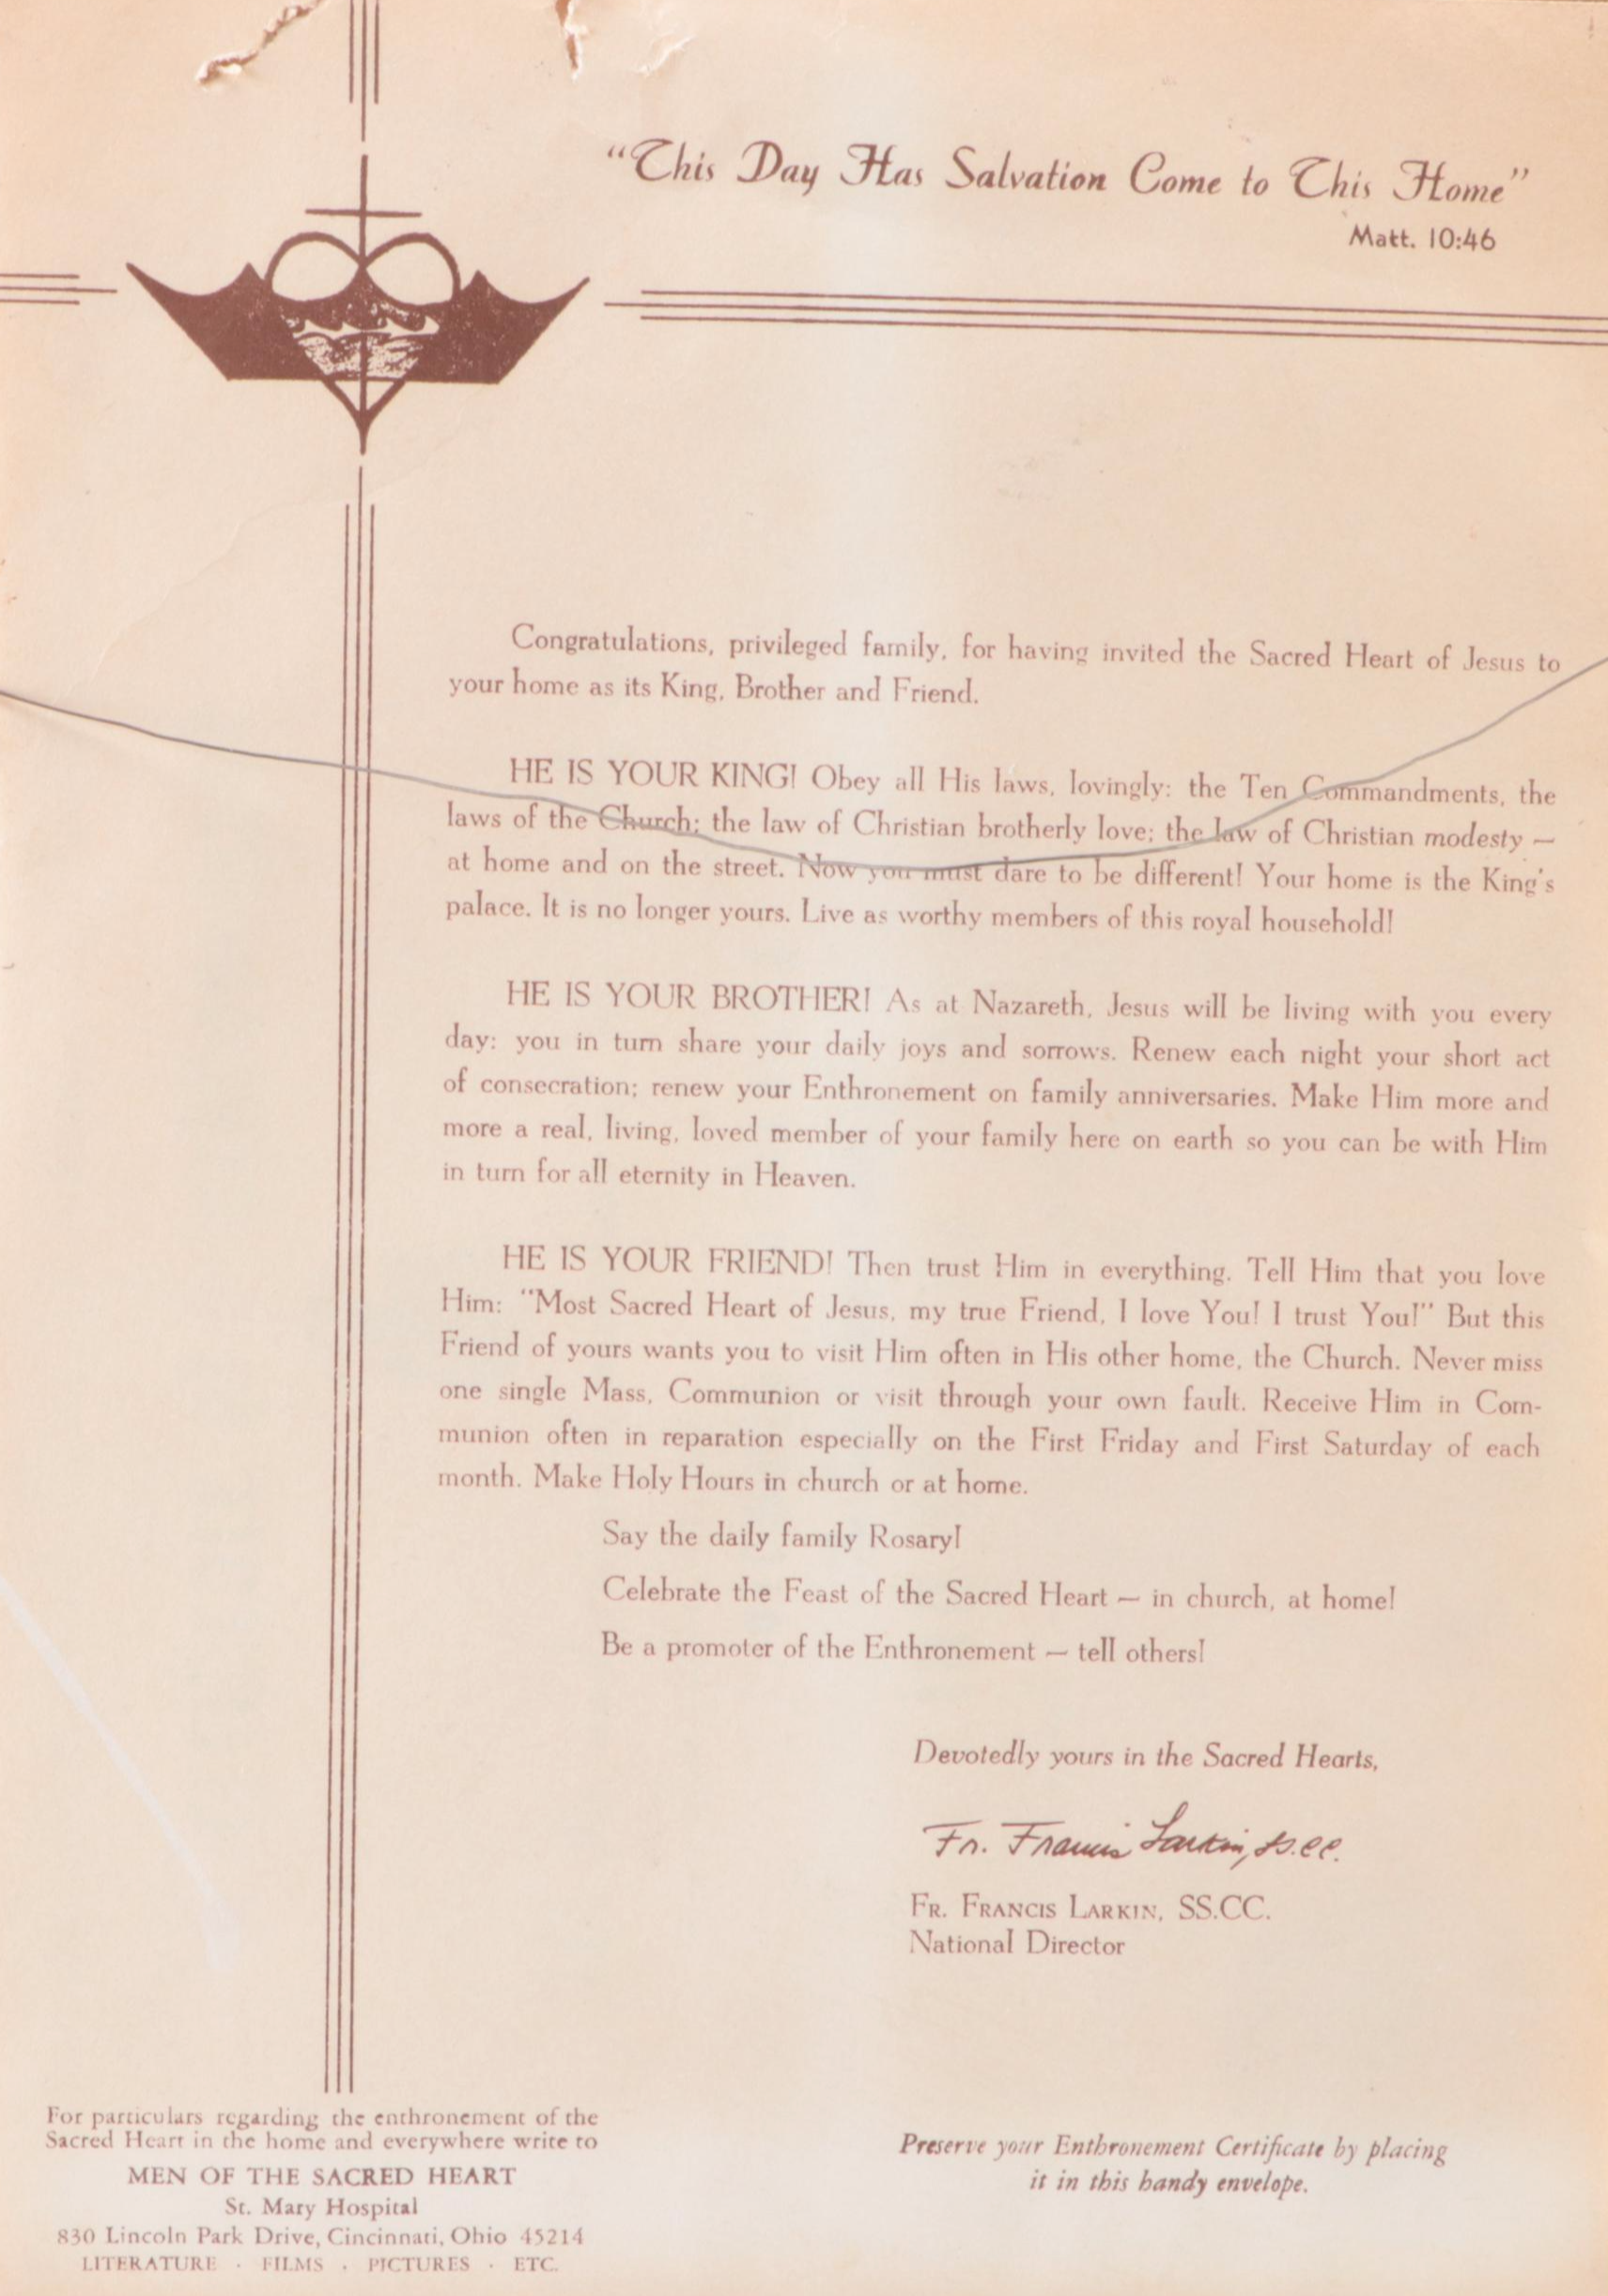 "This Day Has Salvation Come to This Home"
Matt. 10:46
Congratulations, privileged family, for having invited the Sacred Heart of Jesus to
your home as its King, Brother and Friend.
HE IS YOUR KING! Obey all His laws, lovingly: the Ten Commandments, the
laws of the Church; the law of Christian brotherly love; the law of Christian modesty —
at home and on the street. Now you must dare to be different! Your home is the King's
palace. It is no longer yours. Live as worthy members of this royal household!
HE IS YOUR BROTHER! As at Nazareth, Jesus will be living with you every
day: you in turn share your daily joys and sorrows. Renew each night your short act
of consecration; renew your Enthronement on family anniversaries. Make Him more and
more a real, living, loved member of your family here on earth so you can be with Him
in turn for all eternity in Heaven.
HE IS YOUR FRIEND! Then trust Him in everything. Tell Him that you love
Him: "Most Sacred Heart of Jesus, my true Friend, I love You! I trust You!" But this
Friend of yours wants you to visit Him often in His other home, the Church. Never miss
one single Mass, Communion or visit through your own fault. Receive Him in Com-
munion often in reparation especially on the First Friday and First Saturday of each
month. Make Holy Hours in church or at home.
Say the daily family Rosary!
Celebrate the Feast of the Sacred Heart — in church, at home!
Be a promoter of the Enthronement — tell others!
Devotedly yours in the Sacred Hearts,
Fr. Francis Larkin, ss.cc.
FR. FRANCIS LARKIN, SS.CC.
National Director
For particulars regarding the enthronement of the
Sacred Heart in the home and everywhere write to
MEN OF THE SACRED HEART
St. Mary Hospital
830 Lincoln Park Drive, Cincinnati, Ohio 45214
LITERATURE · FILMS · PICTURES · ETC.
Preserve your Enthronement Certificate by placing
it in this handy envelope.